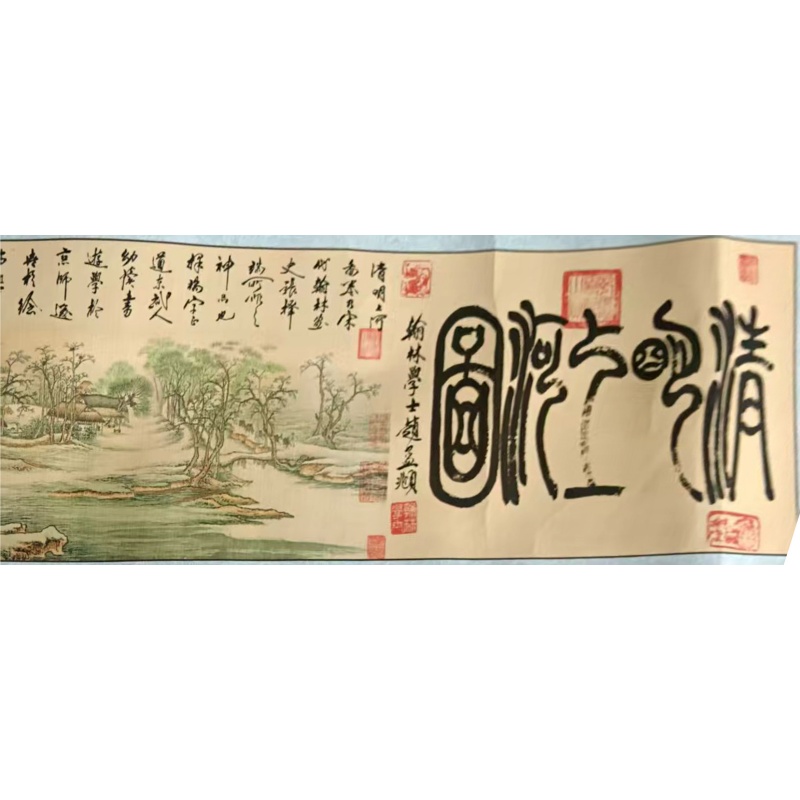 清明上河圖
翰林學士趙孟頫
清明上河
乃宋
時翰林畫
史張擇
端所作之
神品也
擇端字正
道東武人
幼讀書
遊學於
京師後
於繪